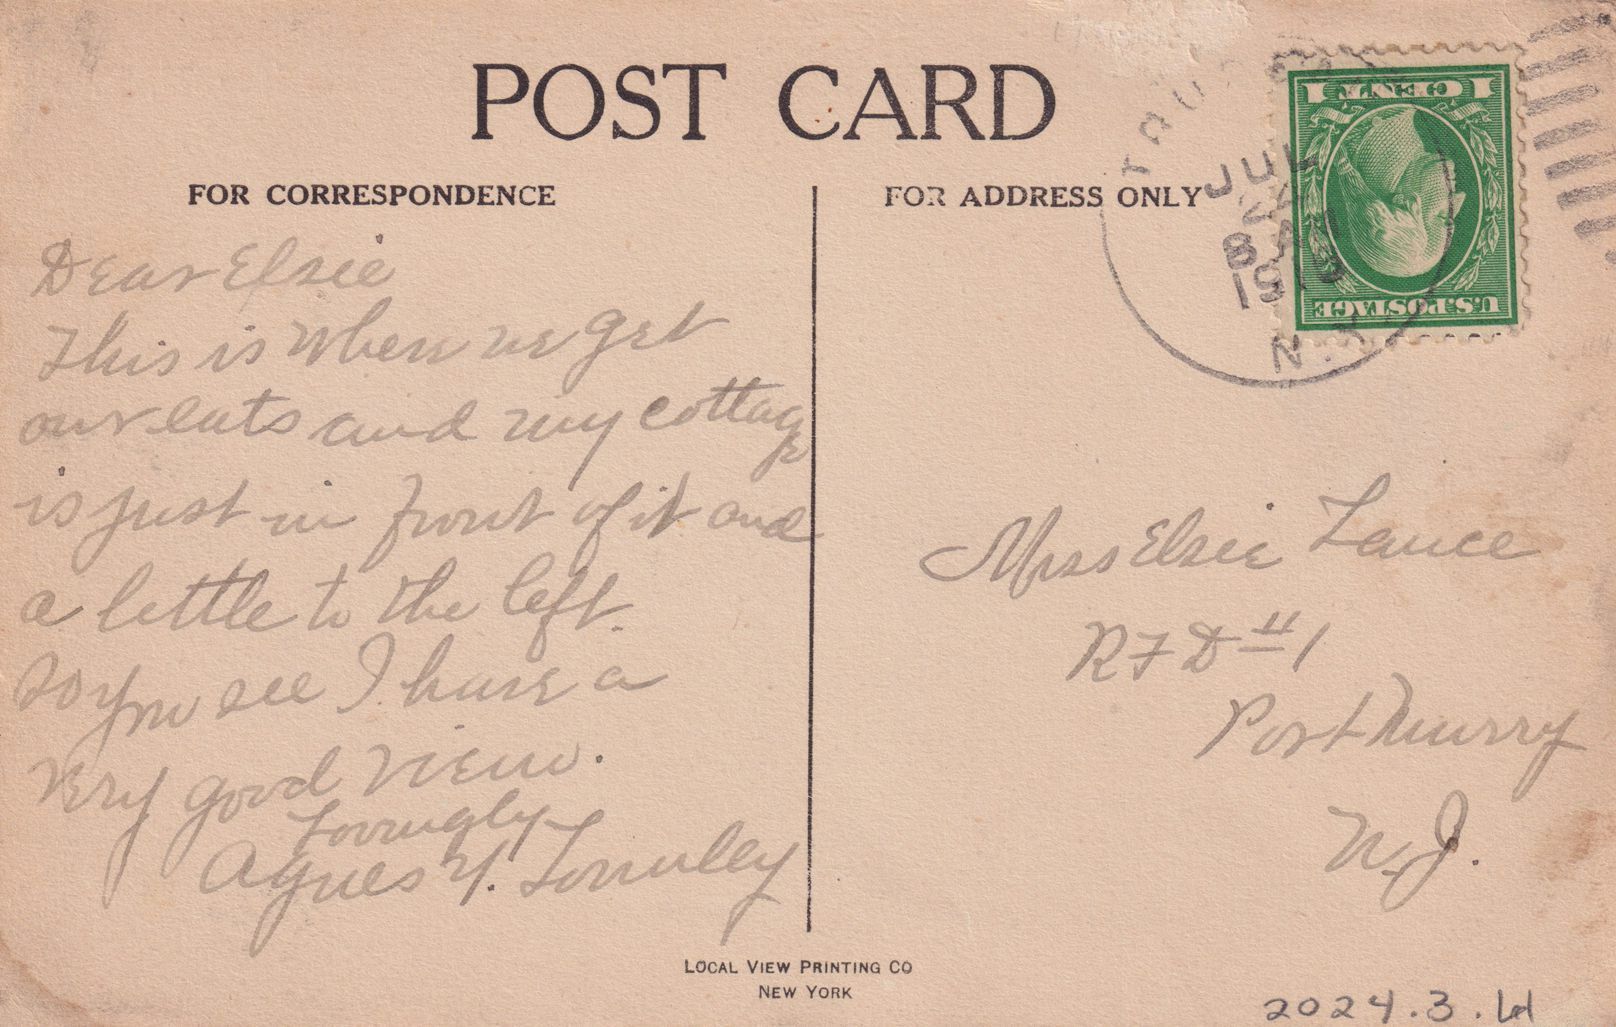 POST CARD
FOR CORRESPONDENCE
FOR ADDRESS ONLY
JUL
8 AM
N.Y.
1 CENT 1
U.S. POSTAGE
Dear Elsie
This is where we get
our eats and my cottage
is just in front of it and
a little to the left.
So you see I have a
very good view.
Lovingly
Agnes Y.
Miss Elsie Lance
RFD #1
Port Murry
N.J.
LOCAL VIEW PRINTING CO
NEW YORK
2024.3.